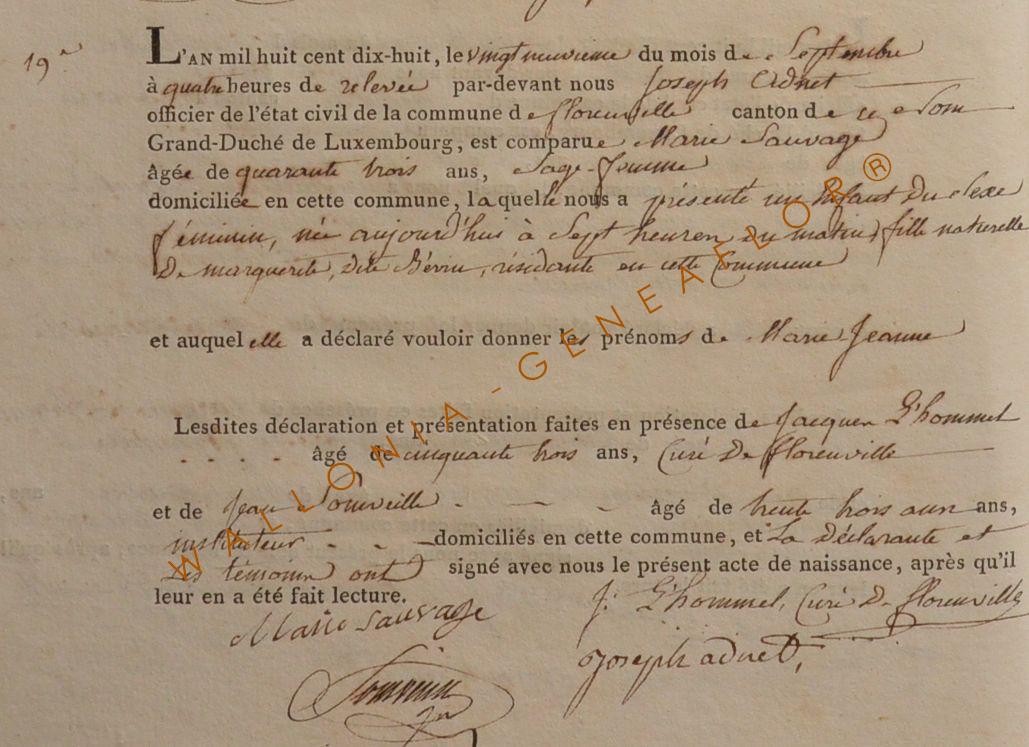 19e
L'AN mil huit cent dix-huit, le vingt neuvieme du mois de Septembre
à quatre heures de relevée par-devant nous Joseph Adnet
officier de l'état civil de la commune de florenville canton de ce nom
Grand-Duché de Luxembourg, est comparue Marie Sauvage
âgée de quarante trois ans, Sage-femme
domiciliée en cette commune, laquelle nous a présenté un Enfant du Sexe
féminin, née aujourd'hui à Sept heures du matin, fille naturelle
De marguerite, dite, résidante en cette Commune
et auquel elle a déclaré vouloir donner les prénoms de Marie Jeanne
Lesdites déclaration et présentation faites en présence de Jacques L'hommel
âgé de cinquante trois ans, Curé De florenville
et de Jean âgé de trente trois ans ans,
instituteur domiciliés en cette commune, et La déclarante et
Les témoins ont signé avec nous le présent acte de naissance, après qu'il
leur en a été fait lecture.
Marie Sauvage
J. L'hommel, Curé De florenville
Joseph adnet,
WALLONIA-GENEAFLOR®